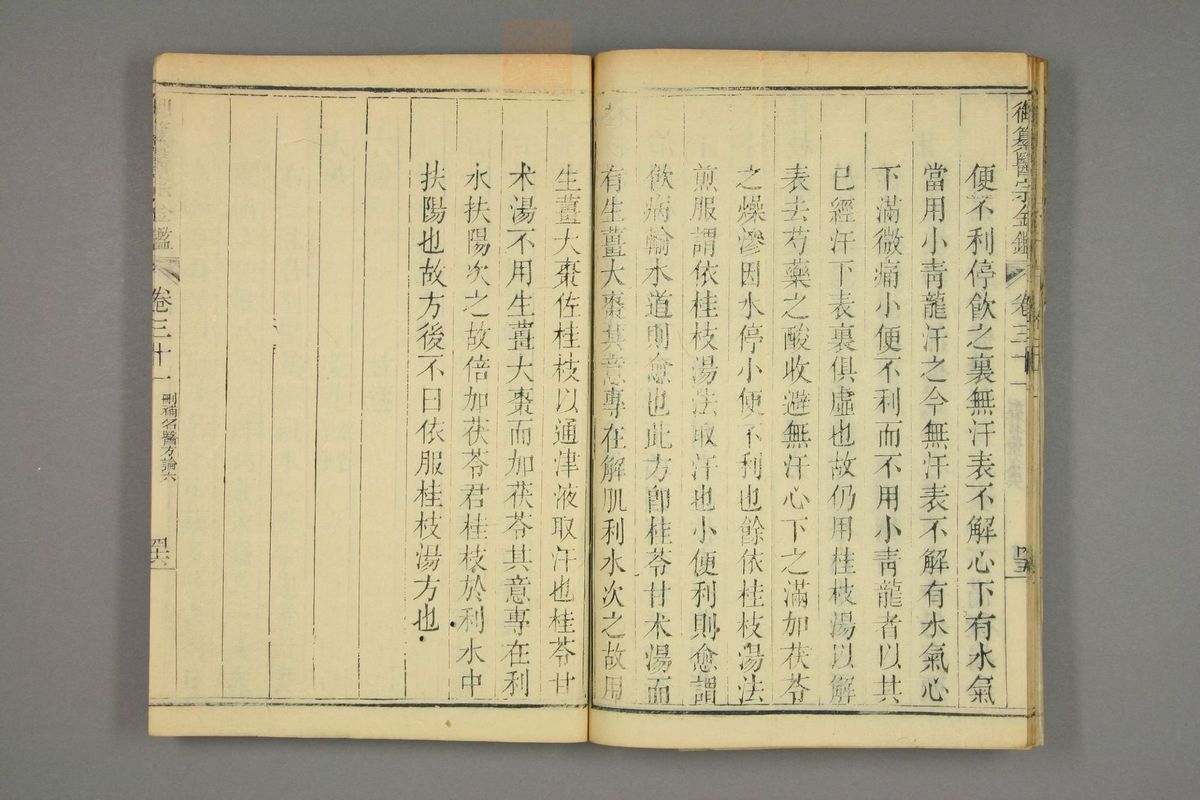 御纂醫宗金鑑 卷三十一
四十五
便不利停飲之裏無汗表不解心下有水氣
當用小青龍汗之今無汗表不解有水氣心
下滿微痛小便不利而不用小青龍者以其
已經汗下表裏俱虛也故仍用桂枝湯以解
表去芍藥之酸收避無汗心下之滿加茯苓
之燥滲因水停小便不利也餘依桂枝湯法
煎服謂依桂枝湯法取汗也小便利則愈謂
飲病輸水道則愈也此方卽桂苓甘术湯而
有生薑大棗其意專在解肌利水次之故用
生薑大棗佐桂枝以通津液取汗也桂苓甘
术湯不用生薑大棗而加茯苓其意專在利
水扶陽次之故倍加茯苓君桂枝於利水中
扶陽也故方後不曰依服桂枝湯方也
金鑑 卷三十一 刪補名醫方論六
四十六